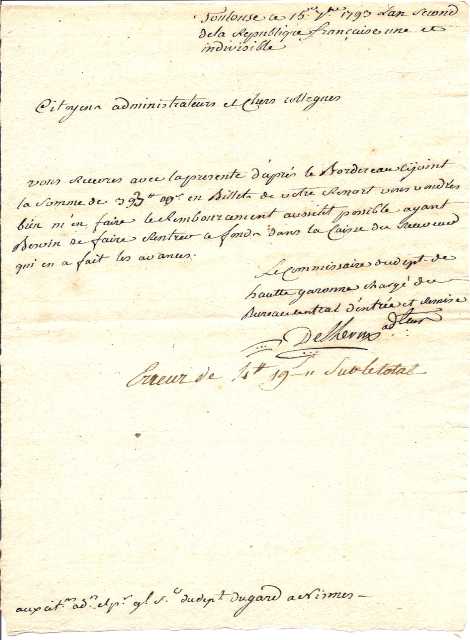 Toulouse ce 15me 7bre 1793 Lan Second
de la Republique francaise une et
indivisible
Citoyens administrateurs et Chers collegues
vous recevres avec la presente d'après le Bordereau cijoint
la somme de 393tt en Billets de votre Ressort vous voudres
bien m'en faire le Remboursement aussitôt possible ayant
Besoin de faire Rentrer ce fonds dans la Caisse du Receveur
qui en a fait les avances.
Le Commissaire du dept de
hautte garonne chargé du
Bureau central d'entrée et Remise
adteur
Erreur de 19 Sur le total
aux citns adrs et pr gl Sc du dept Dugard a Nismes